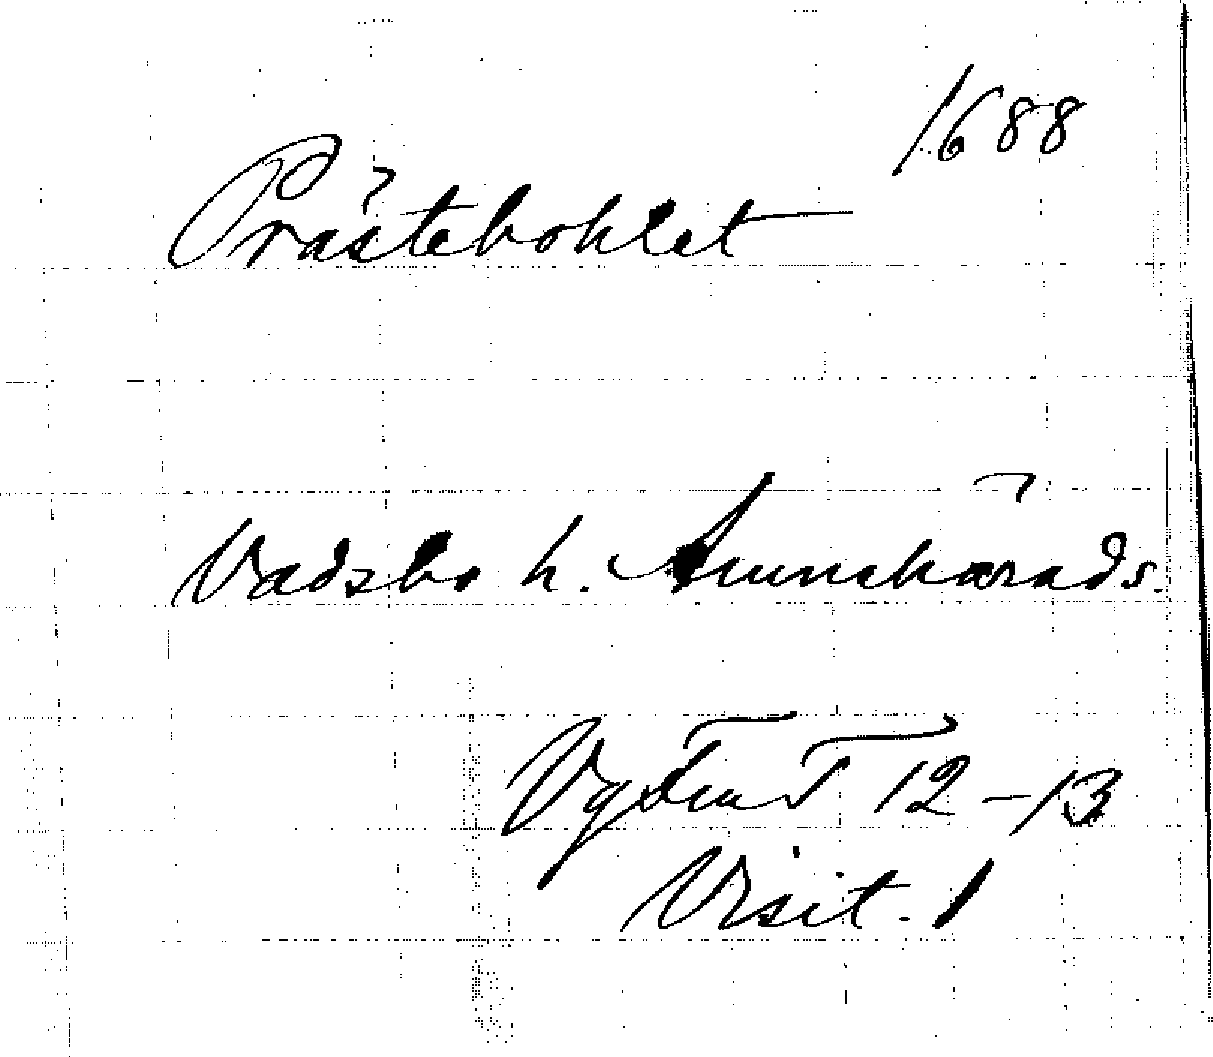 1688
Prästebohlet
Vadsbo h. Amnehärads.
12-13
Visit. 1